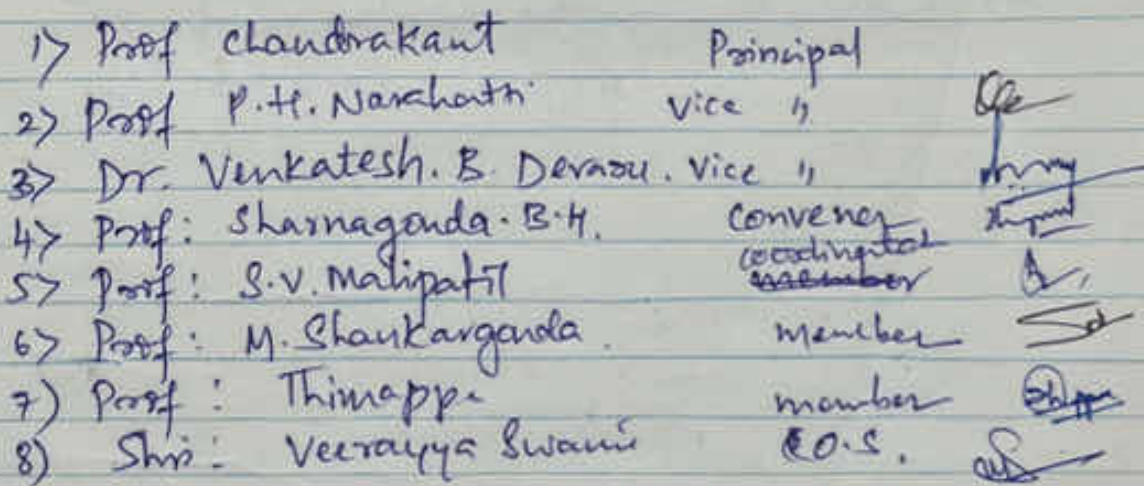 1) Prof Chandrakant Principal
2) Prof P.H. Narahatti Vice "
3) Dr. Venkatesh. B. Devaru. Vice "
4) Prof: Sharnagouda. B.H. Convener
5) Prof: S.V. Malipatil coordinator member
6) Prof: M. Shankargouda. member
7) Prof: Thimappa member
8) Shri: Veerayya Swami O.S.